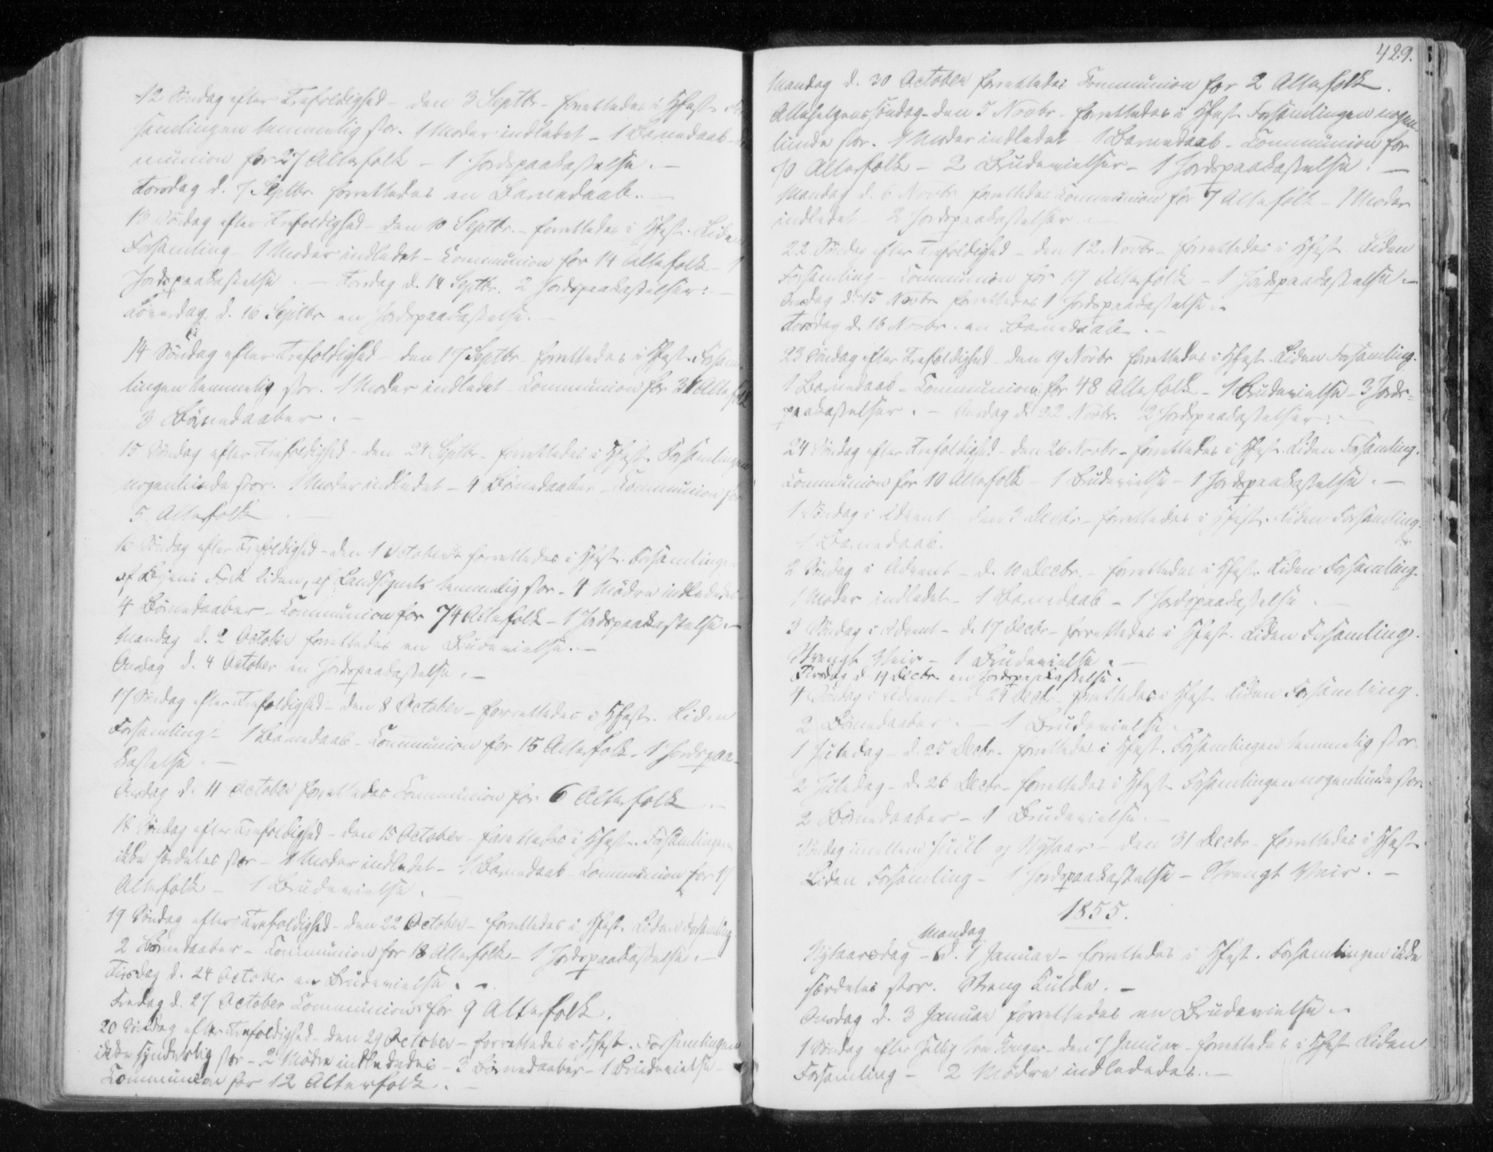 12 Søndag efter Trefoldighed – den 3 Septbr. – forrettedes i Hfest. For-
samlingen temmelig stor. 1 Moder indledet – 1 Barnedaab – Com-
munion for 27 Altefolk – 1 Jordspaakastelse. –
Torsdag d. 7 Septbr. forrettedes en Barnedaab. –
13 Søndag efter Trefoldighed – den 10 Septbr. – forrettedes i Hfest. Liden
Forsamling – 1 Moder indledet – Communion for 14 Altefolk – 1
Jordspaakastelse. – d. 14 Septbr. 2 Jordspaakastelser. –
Løverdag d. 16 Septbr en Jordspaakastelse. –
14 Søndag efter Trefoldighed – den 17 Septbr. forrettedes i Hfest. Forsam-
lingen temmelig stor. 1 Moder indledet – Communion for Altefolk
3 Børnedaaber. –
15 Søndag efter Trefoldighed – den 24 Septbr. – forrettedes i Hfest. Forsamlingen
nogenlunde stor. 1 Moder indledet – 4 Børnedaaber – Communion for
5 Altefolk –
16 Søndag efter Trefoldighed – den 1 October forrettedes i Hfest. Forsamlingen
af Byens Folk liden, af Landsognets temmelig stor – 4 Mødre indlededes
4 Børnedaaber – Communion for 74 Altefolk – 1 Jordspaakastelse. –
Mandag d. 2 October forrettedes en Brudevielse. –
Onsdag d. 4 October en Jordspaakastelse. –
17 Søndag efter Trefoldighed – den 8 October – forrettedes i Hfest. Liden
Forsamling – 1 Barnedaab – Communion for 15 Altefolk. 1 Jordspaa-
kastelse. –
Onsdag d. 11 October forrettedes Communion for 6 Altefolk –
18 Søndag efter Trefoldighed – den 15 October – forrettedes i Hfest. Forsamlingen
ikke særdeles stor – 1 Moder indledet – 1 Barnedaab – Communion for 17
Altefolk – 1 Brudevielse.
19 Søndag efter Trefoldighed – den 22 October – forrettedes i Hfest. Liden Forsamling
2 Børnedaaber – Communion for 18 Altefolk – 1 Jordspaakastelse. –
Tirsdag d. 24 October en Brudevielse. –
Fredag d. 27 October Communion for 9 Altefolk.
20 Søndag efter Trefoldighed – den 29 October – forrettedes i Hfest. Forsamlingen
ikke synderlig stor – 2 Mødre indlededes – 3 Børnedaaber – 1 Brudevielse –
Communion for 12 Altefolk. –
429.
Mandag d. 30 October forrettedes Communion for 2 Altefolk.
Allehelgenssøndag – den 5 Novbr. – forrettedes i Hfest. Forsamlingen nogen-
lunde stor. 1 Moder indledet – 1 Barnedaab – Communion for
10 Altefolk – 2 Brudevielser – 1 Jordspaakastelse. –
Mandag d. 6 Novbr forrettedes Communion for 7 Altefolk – 1 Moder
indledet – 2 Jordspaakastelser. –
22 Søndag efter Trefoldighed – den 12 Novbr – forrettedes i Hfest. Liden
Forsamling – Communion for 17 Altefolk – 1 Jordspaakastelse. –
Onsdag d. 15 Novbr forrettedes 1 Jordspaakastelse. –
Torsdag d. 16 Novbr. en Barnedaab. –
23 Søndag efter Trefoldighed – den 19 Novbr forrettedes i Hfest. Liden Forsamling.
1 Barnedaab – Communion for 48 Altefolk – 1 Brudevielse – 3 Jords-
paakastelser. – Onsdag d. 22 Novbr. 2 Jordspaakastelser. –
24 Søndag efter Trefoldighed – den 26 Novbr – forrettedes i Hfest. Liden Forsamling.
Communion for 10 Altefolk – 1 Brudevielse – 1 Jordspaakastelse. –
1 Søndag i Advent – den 3 Decbr. – forrettedes i Hfest. Liden Forsamling –
1 Barnedaab.
2 Søndag i Advent – d. 10 Decbr. – forrettedes i Hfest. Liden Forsamling.
1 Moder indledet – 1 Barnedaab – 1 Jordspaakastelse. –
3 Søndag i Advent – d. 17 Decbr – forrettedes i Hfest. Liden Forsamling.
Strengt Veir – 1 Brudevielse. –
Tirsdag d. 19 Decbr. en Jordspaakastelse.
4 Søndag i Advent – d. 24 Decbr. forrettedes i Hfest. Liden Forsamling.
2 Børnedaaber. – 1 Brudevielse.
1 Juledag – d. 25 Decbr. forrettedes i Hfest. Forsamlingen temmelig stor.
2 Juledag – d. 26 Decbr – forrettedes i Hfest. Forsamlingen nogenlunde stor.
2 Børnedaaber – 1 Brudevielse. –
Søndag imellem Juul og Nytaar – den 31 Decbr – forrettedes i Hfest.
Liden Forsamling – 1 Jordspaakastelse – Strengt Veir. –
1855.
Mandag
Nytaarsdag – d. 1 Januar – forrettedes i Hfest. Forsamlingen ikke
særdeles stor. Streng Kulde. –
Onsdag d. 3 Januar forrettedes en Brudevielse. –
1 Søndag efter Hellig tre Konger – den 7 Januar – forrettedes i Hfest. Liden
Forsamling – 2 Mødre indlededes. –